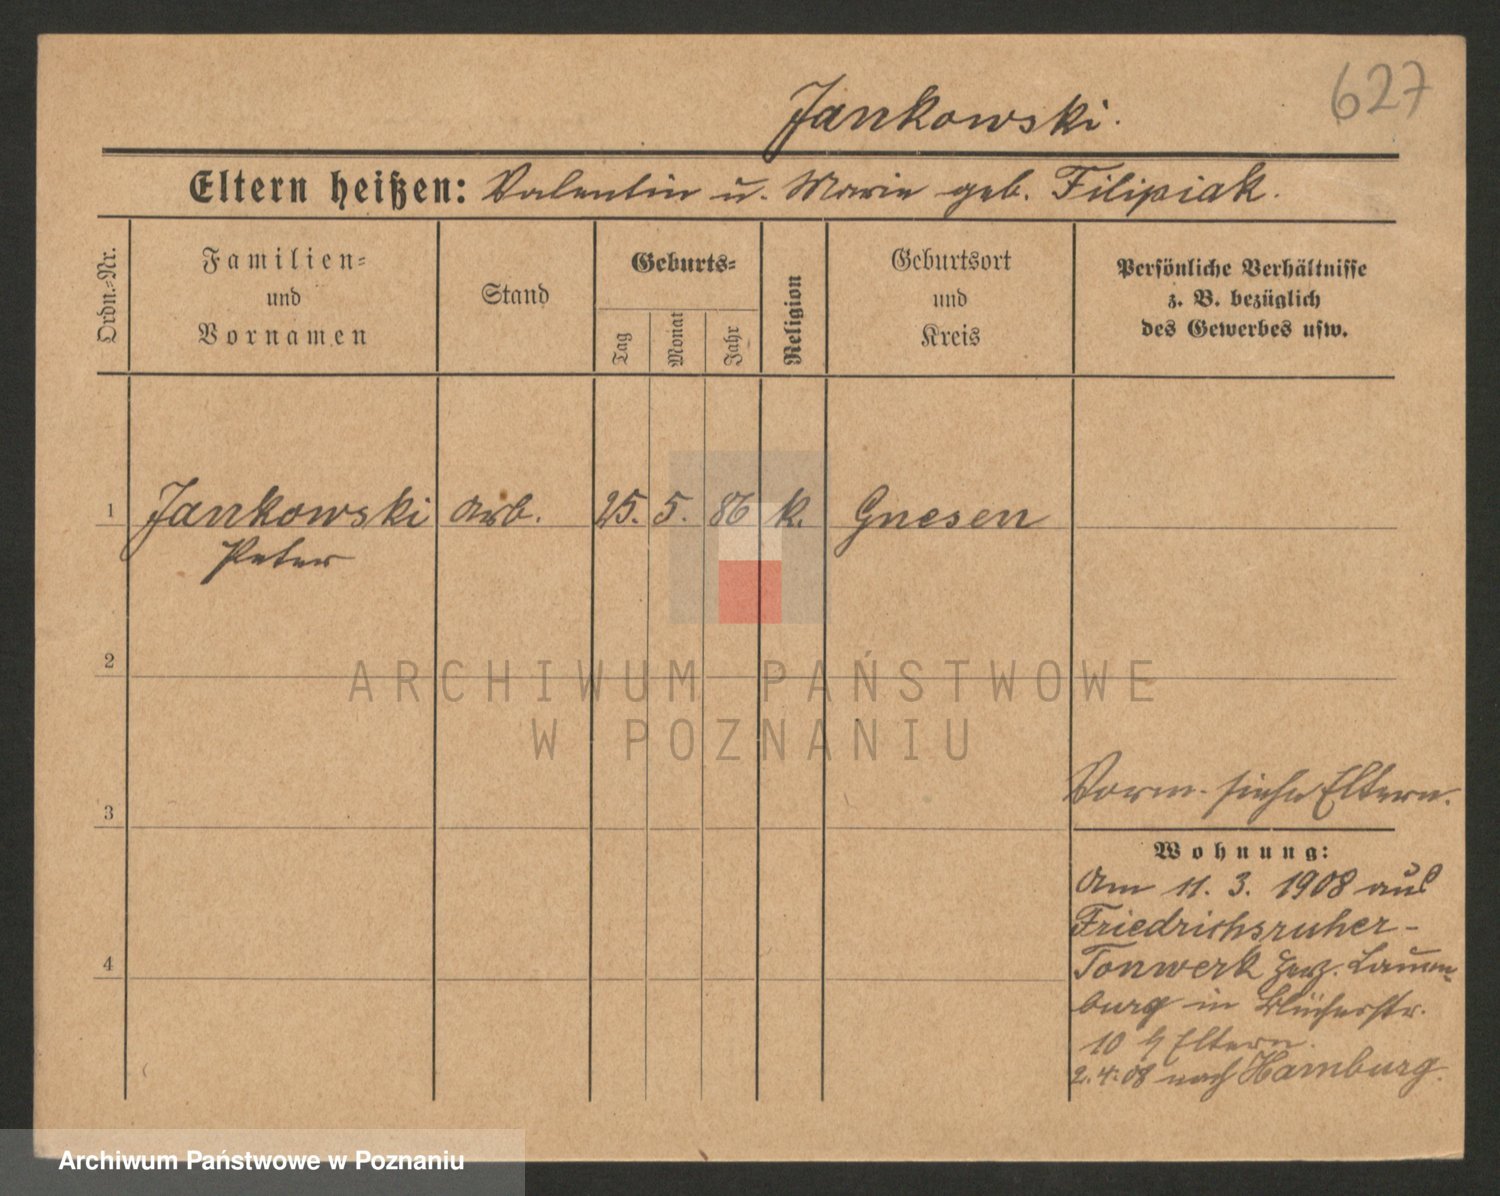 627
Jankowski.
Eltern heißen: Valentin u. Marie geb. Filipiak.
Ordn.-Nr.
Familien-
und
Vornamen
Stand
Geburts-
Tag
Monat
Jahr
Religion
Geburtsort
und
Kreis
Persönliche Verhältnisse
z. B. bezüglich
des Gewerbes usw.
1 Jankowski Arb. 25. 5. 86 k. Gnesen
Peter
2
ARCHIWUM PAŃSTWOWE
W POZNANIU
Vorm. siehe Eltern.
3
Wohnung:
Am 11. 3. 1908 aus
Friedrichsruher-
Tonwerk Herz. Lauen-
4
burg in Blücherstr.
10 Eltern.
2.4.08 nach Hamburg.
Archiwum Państwowe w Poznaniu